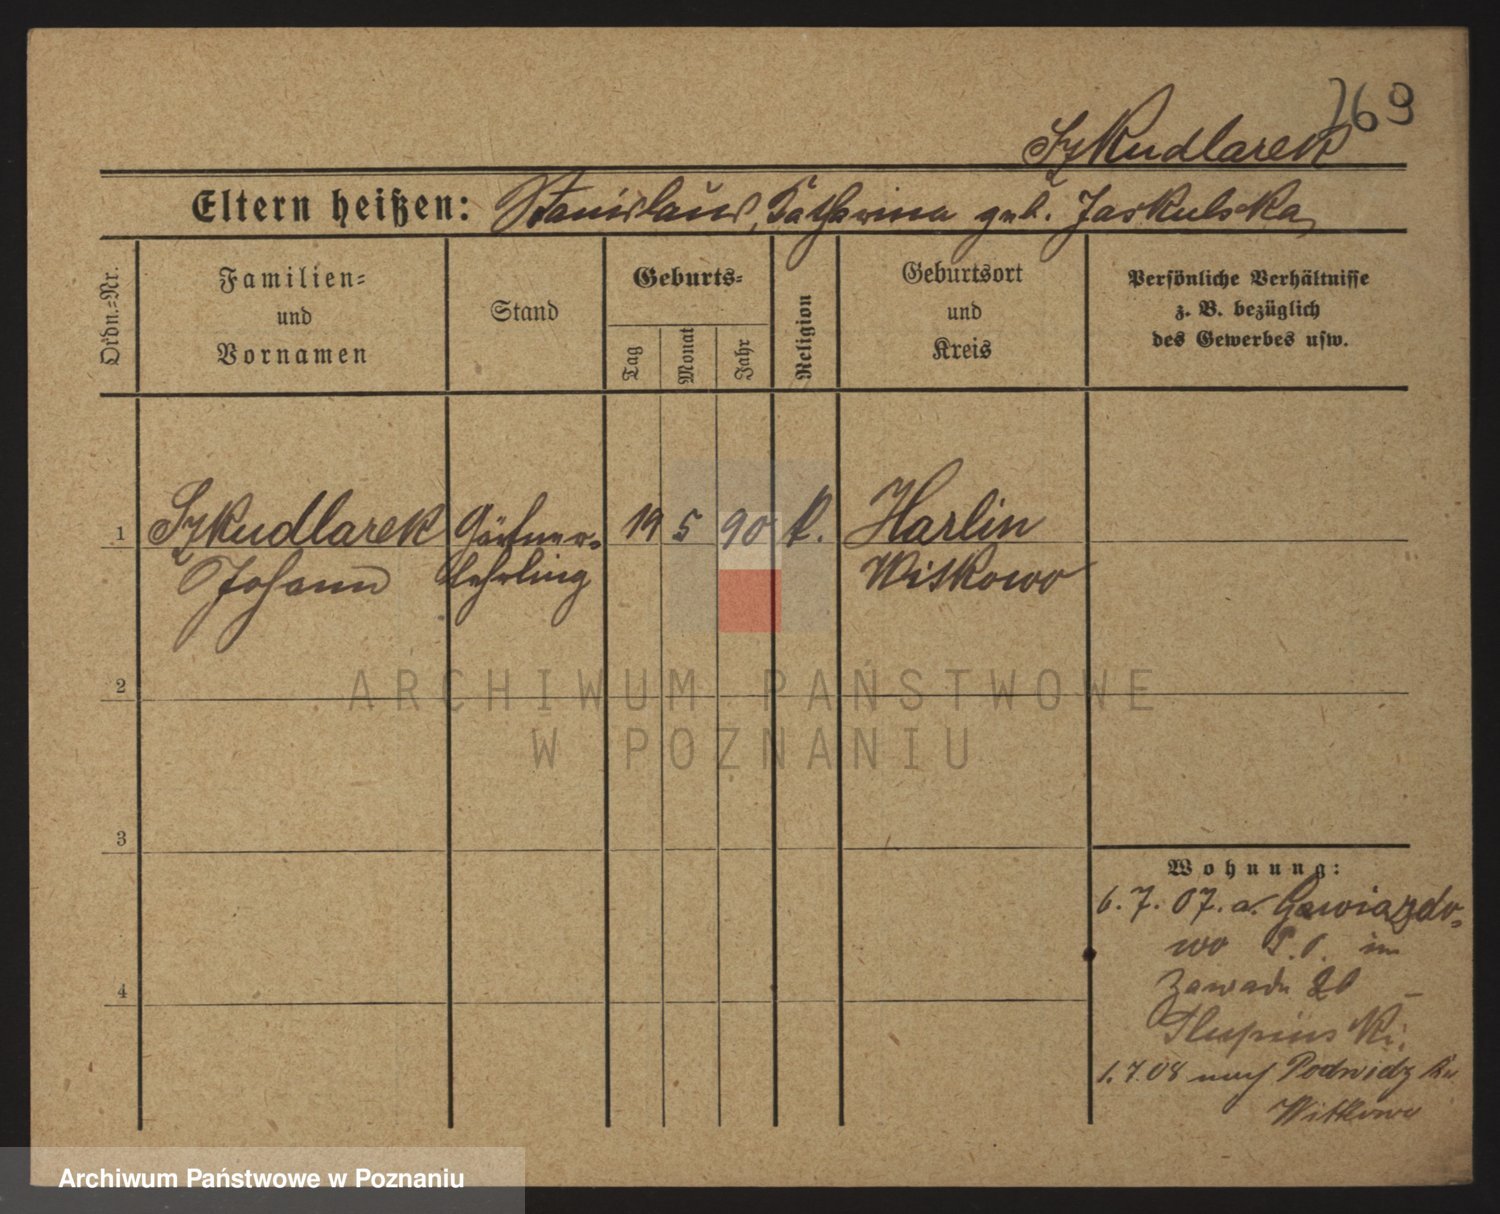 769
Szkudlarek
Eltern heißen: Stanislaus, Katharina geb. Jaskulska
Ordn.-Nr.
Familien-
und
Vornamen
Stand
Geburts-
Tag
Monat
Jahr
Religion
Geburtsort
und
Kreis
Persönliche Verhältnisse
z. B. bezüglich
des Gewerbes usw.
1 Szkudlarek Gärtner- 19 5 90 k. Harlin
Johann lehrling Witkowo
2
ARCHIWUM PAŃSTWOWE
W POZNANIU
3
Wohnung:
6. 7. 07. a.
wo P. O. im
4
Zawade 20
Slupinski.
1.7.08 nach Kr.
Witkowo
Archiwum Państwowe w Poznaniu